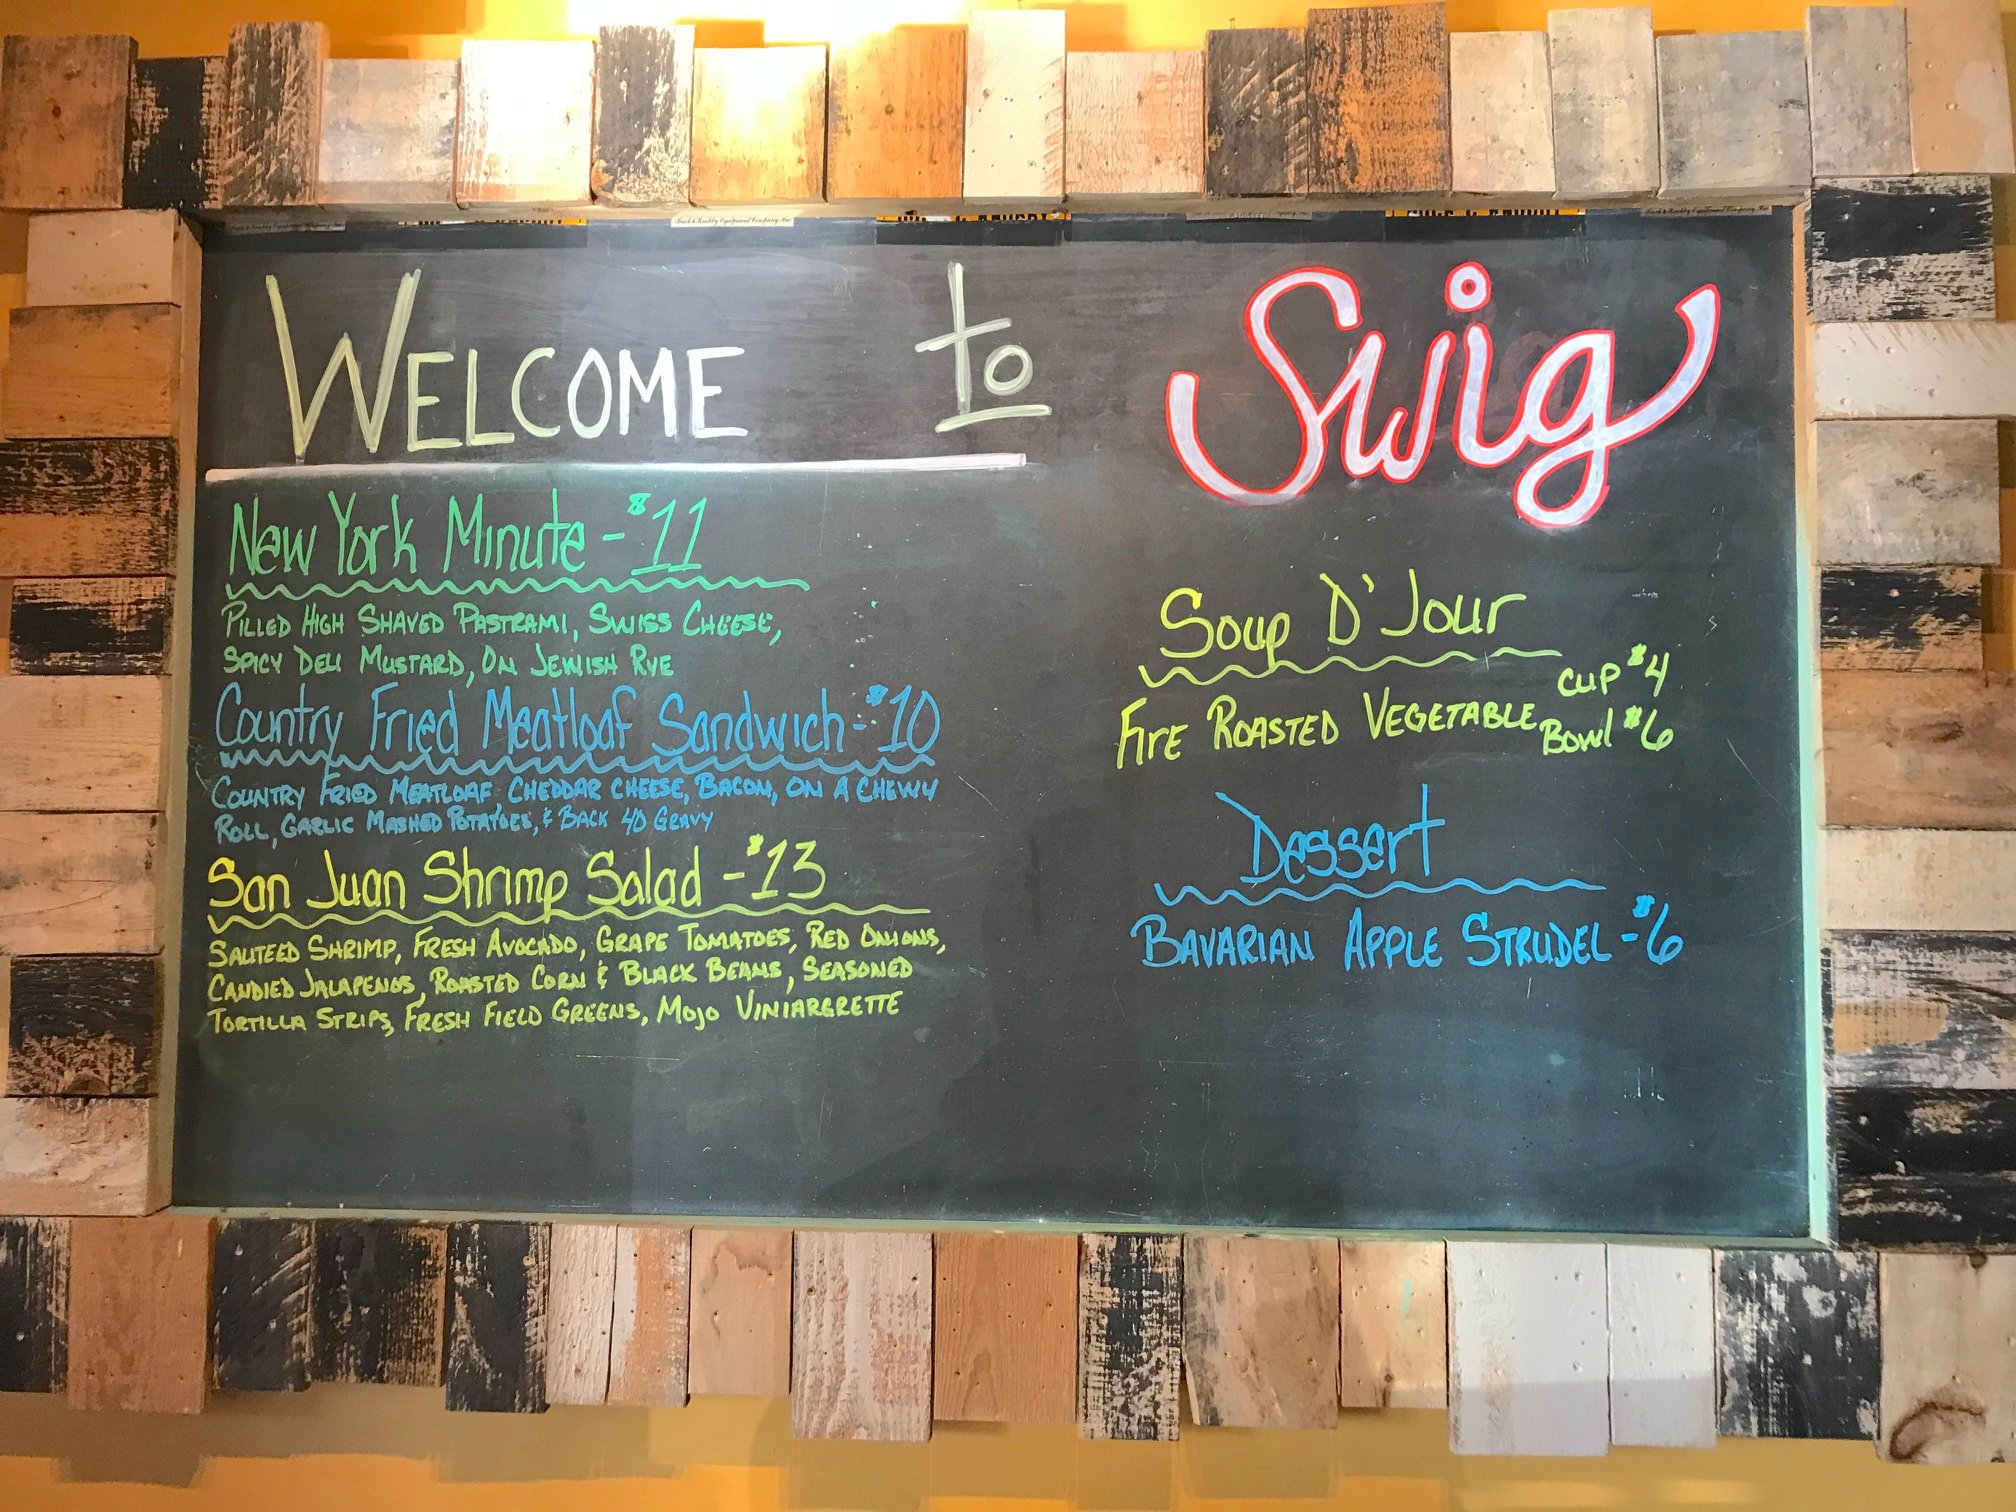 Back & Knobby Equipment Company, Inc
WELCOME to Swig
New York Minute - $11
PILLED HIGH SHAVED PASTRAMI, SWISS CHEESE,
SPICY DELI MUSTARD, ON JEWISH RYE
Country Fried Meatloaf Sandwich - $10
COUNTRY FRIED MEATLOAF CHEDDAR CHEESE, BACON, ON A CHEWY
ROLL, GARLIC MASHED POTATOES, & BACK 40 GRAVY
San Juan Shrimp Salad - $13
SAUTEED SHRIMP, FRESH AVOCADO, GRAPE TOMATOES, RED ONIONS,
CANDIED JALAPENOS, ROASTED CORN & BLACK BEANS, SEASONED
TORTILLA STRIPS, FRESH FIELD GREENS, MOJO VINIARGRETTE
Soup D'Jour
FIRE ROASTED VEGETABLE CUP $4
BOWL $6
Dessert
BAVARIAN APPLE STRUDEL - $6